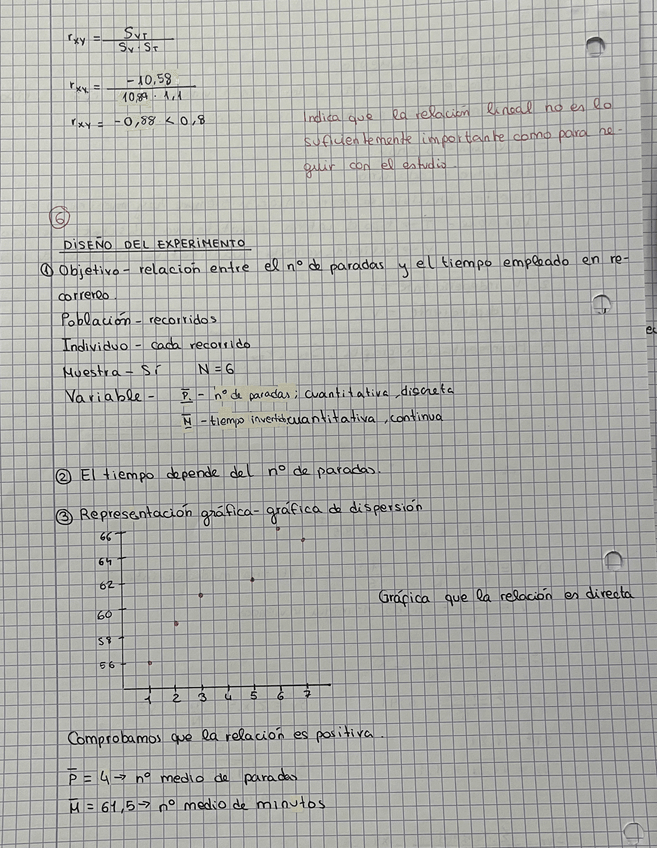 rxy = SVT
SV · ST
rxy = -10,58
10,89 · 1,1
rxy = -0,88 < 0,8
Indica que la relación lineal no es lo
suficientemente importante como para se-
guir con el estudio.
6
DISEÑO DEL EXPERIMENTO
① Objetivo - relación entre el nº de paradas y el tiempo empleado en re-
correrlo.
Población - recorridos
Individuo - cada recorrido
Muestra - Sí N = 6
Variable - P - nº de paradas; cuantitativa, discreta
M - tiempo invertido cuantitativa, continua
② El tiempo depende del nº de paradas.
③ Representación gráfica - gráfica de dispersión
66
64
62
60
58
56
1 2 3 4 5 6 7
Gráfica que la relación es directa
Comprobamos que la relación es positiva.
P̅ = 4 → nº medio de paradas
M̅ = 61,5 → nº medio de minutos